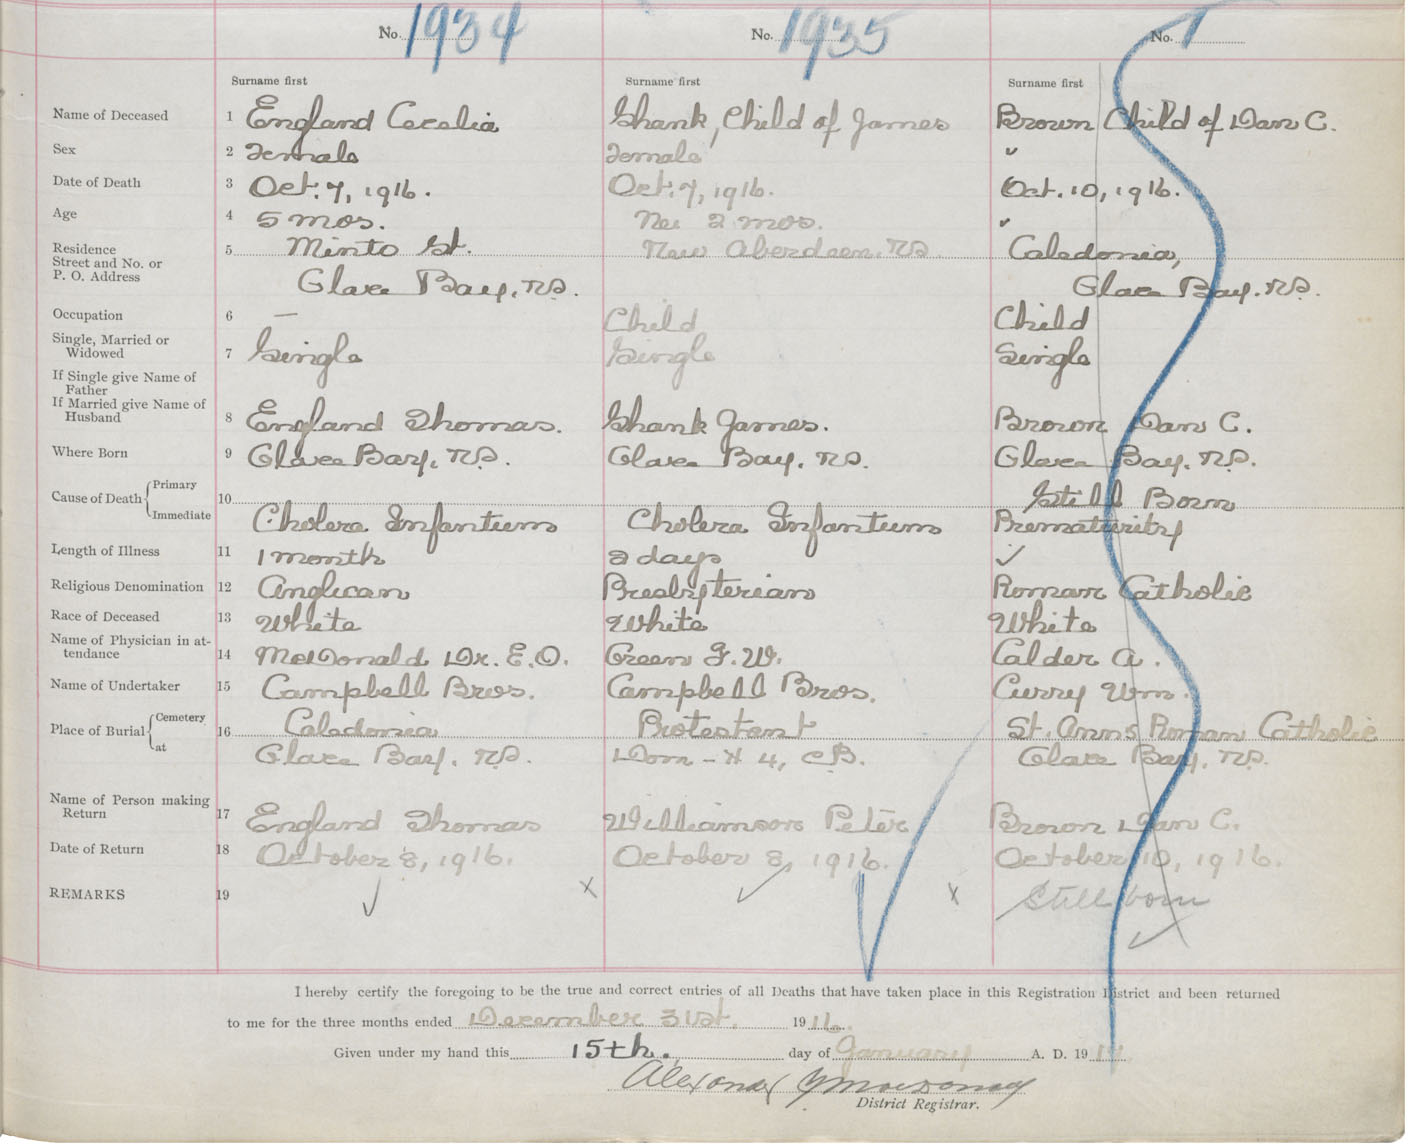 No. 1934 No. 1935 No.
Surname first Surname first Surname first
Name of Deceased 1 England Cecelia Shank, Child of James Brown Child of Dan C.
Sex 2 Female Female "
Date of Death 3 Oct. 7, 1916. Oct. 7, 1916. Oct. 10, 1916.
Age 4 5 mos. 2 mos. "
Residence 5 Minto St. New Aberdeen, N.S. Caledonia,
Street and No. or
P. O. Address Glace Bay, N.S. Glace Bay, N.S.
Occupation 6 — Child Child
Single, Married or
Widowed 7 Single Single Single
If Single give Name of
Father
If Married give Name of
Husband 8 England Thomas. Shank James. Brown Dan C.
Where Born 9 Glace Bay, N.S. Glace Bay, N.S. Glace Bay, N.S.
Cause of Death Primary 10 Still Born
Immediate Cholera Infantum Cholera Infantum Prematurity
Length of Illness 11 1 month 2 days ✓
Religious Denomination 12 Anglican Presbyterian Roman Catholic
Race of Deceased 13 White White White
Name of Physician in at-
tendance 14 McDonald Dr. E.O. Green F.W. Calder A.
Name of Undertaker 15 Campbell Bros. Campbell Bros. Curry Wm.
Place of Burial Cemetery 16 Caledonia Protestant St. Anns Roman Catholic
at Glace Bay, N.S. Dom - # 4, C.B. Glace Bay, N.S.
Name of Person making
Return 17 England Thomas Williamson Peter Brown Dan C.
Date of Return 18 October 8, 1916. October 8, 1916. October 10, 1916.
REMARKS 19 ✓ x ✓ x Still born
✓
I hereby certify the foregoing to be the true and correct entries of all Deaths that have taken place in this Registration District and been returned
to me for the three months ended December 31st. 1916.
Given under my hand this 15th. day of January A. D. 19
Alexander
District Registrar.